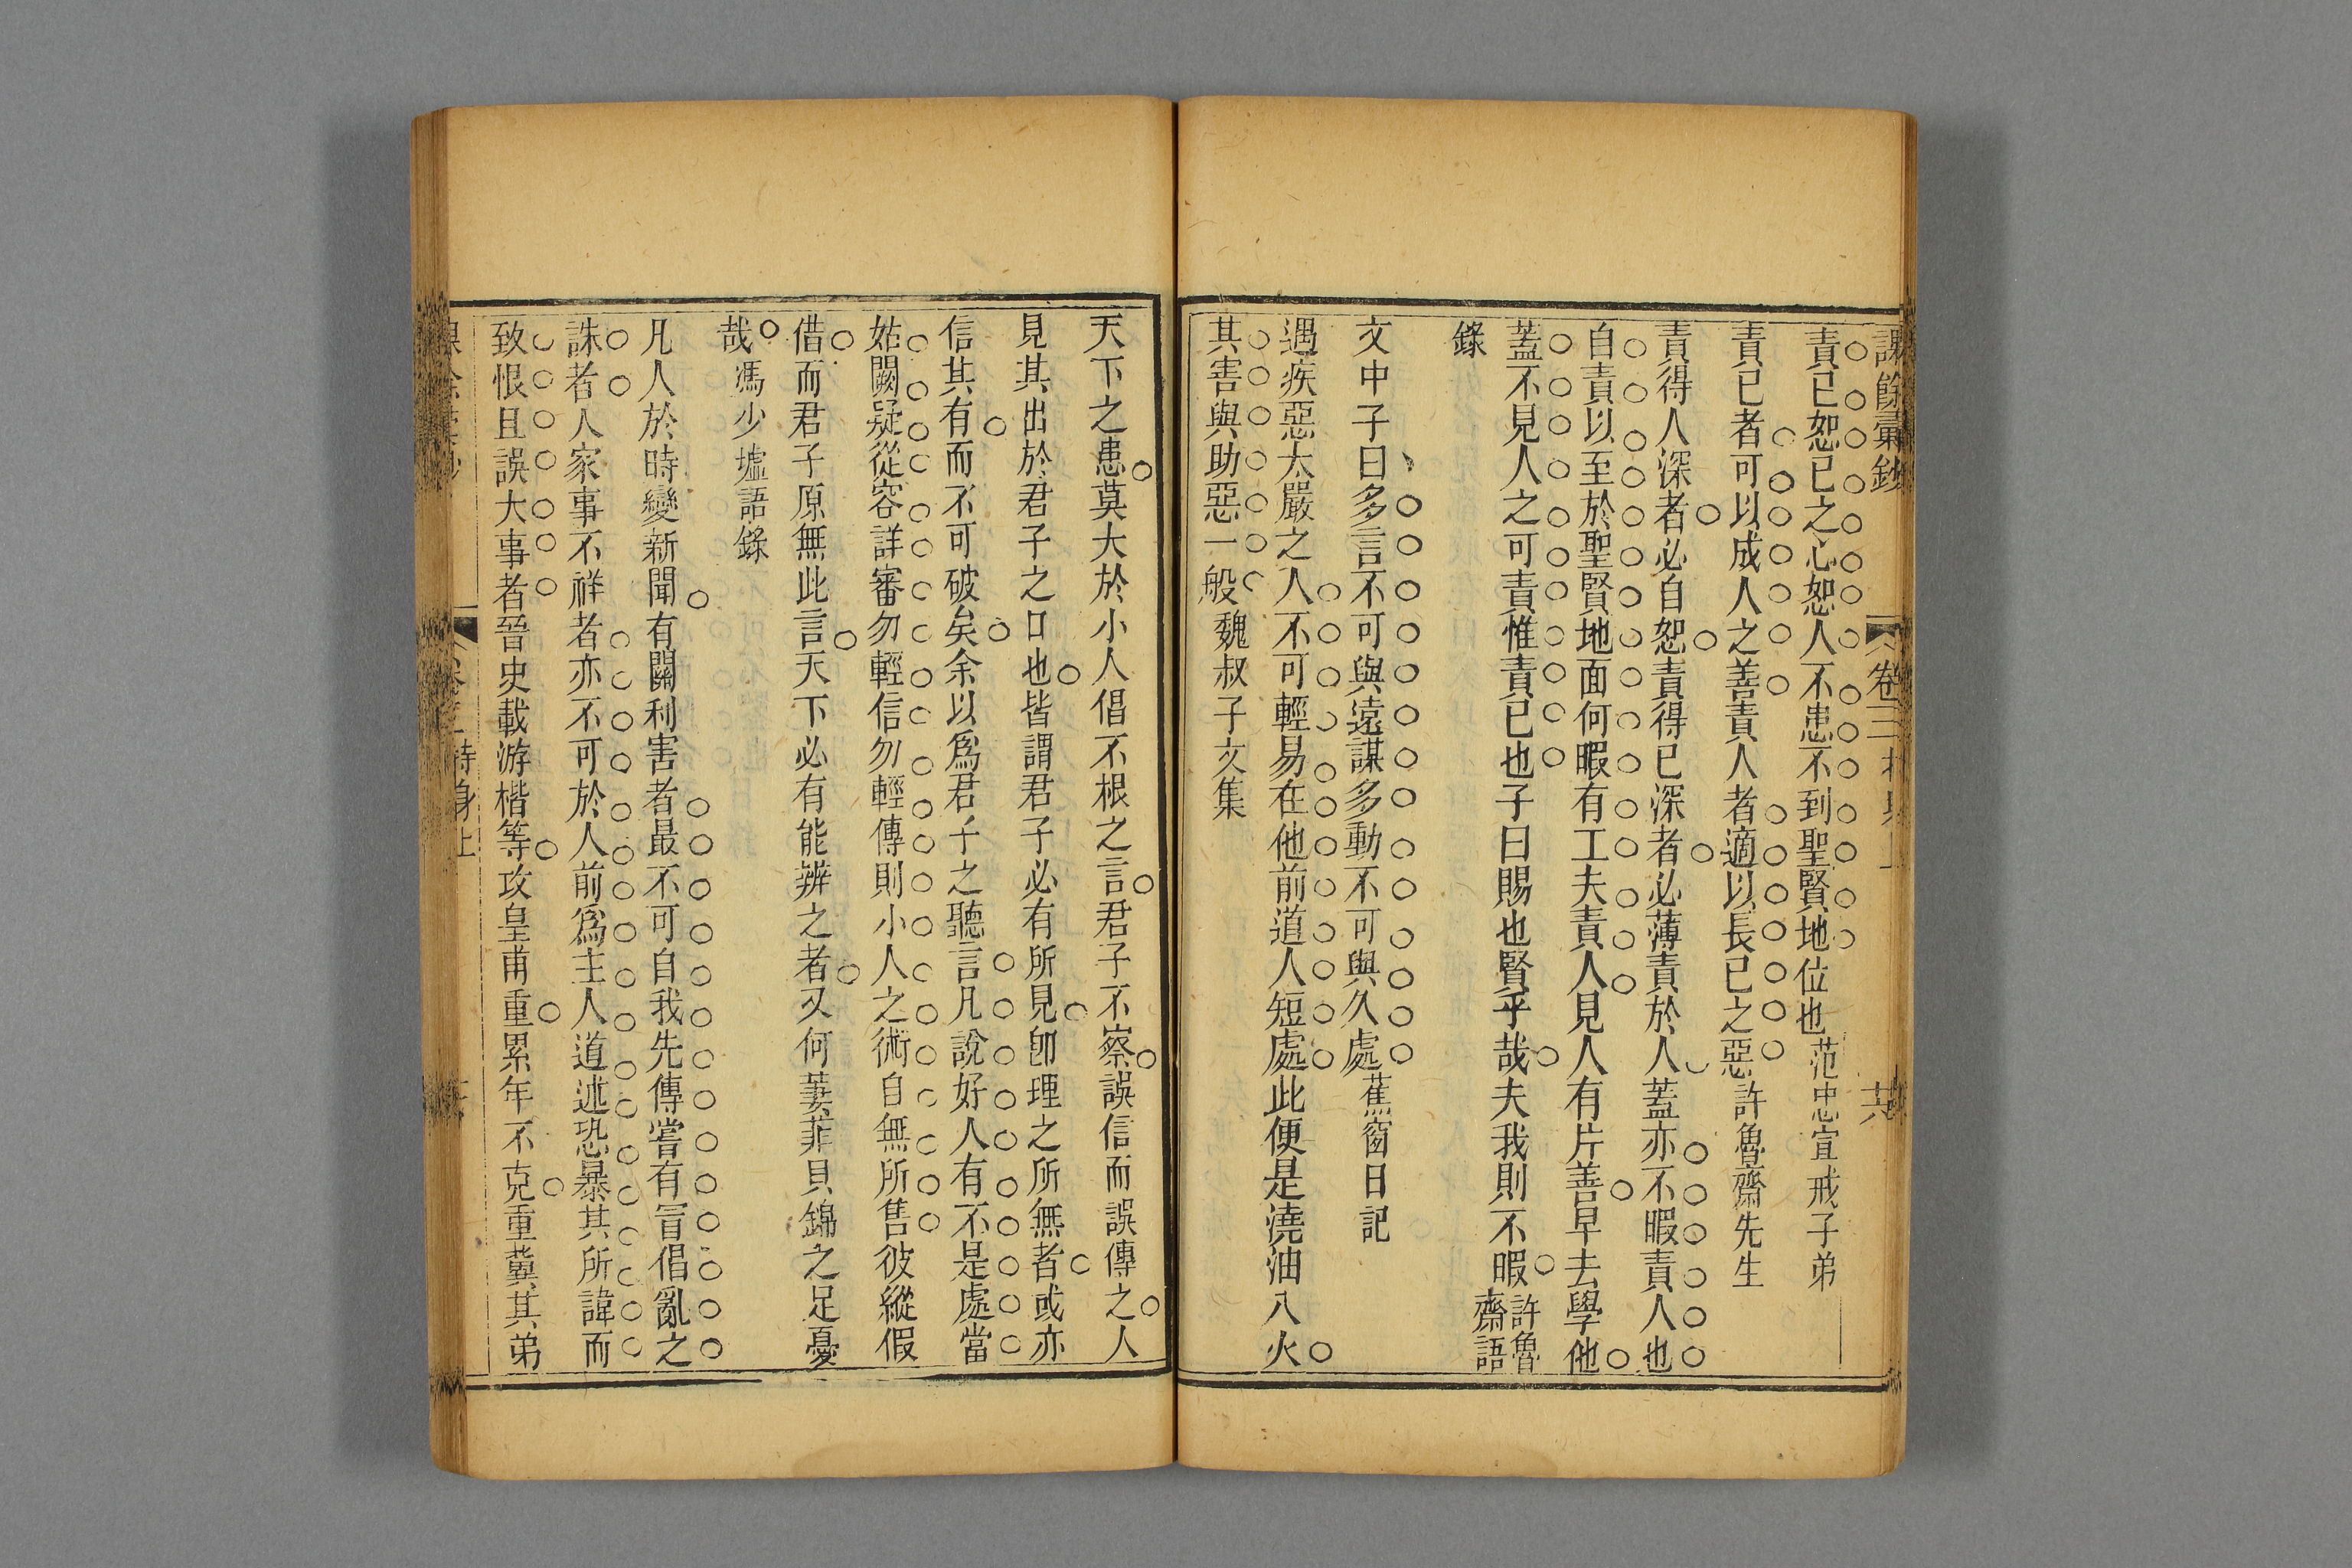 課餘彙鈔 卷三 六
責已恕已之心恕人不患不到聖賢地位也 范忠宣戒子弟
責已者可以成人之善責人者適以長已之惡 許魯齋先生
責得人深者必自恕責得已深者必薄責於人蓋亦不暇責人也
自責以至於聖賢地面何暇有工夫責人見人有片善早去學他
蓋不見人之可責惟責已也子曰賜也賢乎哉夫我則不暇 許魯齋語
錄
文中子曰多言不可與遠謀多動不可與久處 蕉窗日記
遇疾惡太嚴之人不可輕易在他前道人短處此便是澆油入火
其害與助惡一般 魏叔子文集
天下之患莫大於小人倡不根之言君子不察誤信而誤傳之人
見其出於君子之口也皆謂君子必有所見卽理之所無者或亦
信其有而不可破矣余以爲君子之聽言凡說好人有不是處當
姑闕疑從容詳審勿輕信勿輕傳則小人之術自無所售彼縱假
借而君子原無此言天下必有能辨之者又何萋菲貝錦之足憂
哉 馮少墟語錄
凡人於時變新聞有關利害者最不可自我先傳嘗有冒倡亂之
誅者人家事不祥者亦不可於人前爲主人道述恐暴其所諱而
致恨且誤大事者晉史載游楷等攻皇甫重累年不克重冀其弟
持身上